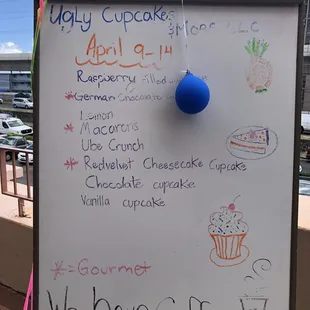 Ugly Cupcakes
& More LLC
April 9-14
Raspberry Filled
* German Chocolate
Lemon
* Macarons
Ube Crunch
* Redvelvet Cheesecake Cupcake
Chocolate cupcake
Vanilla cupcake
* = Gourmet
We have